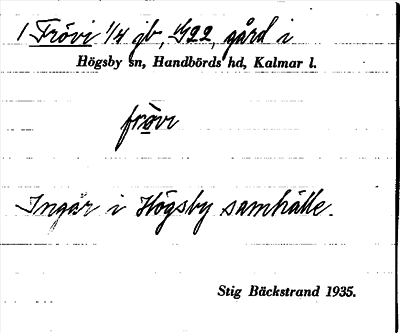 1 Frövi 1/4 gb, 1/922, gård i
Högsby sn, Handbörds hd, Kalmar l.
frövi
Ingår i Högsby samhälle.
Stig Bäckstrand 1935.